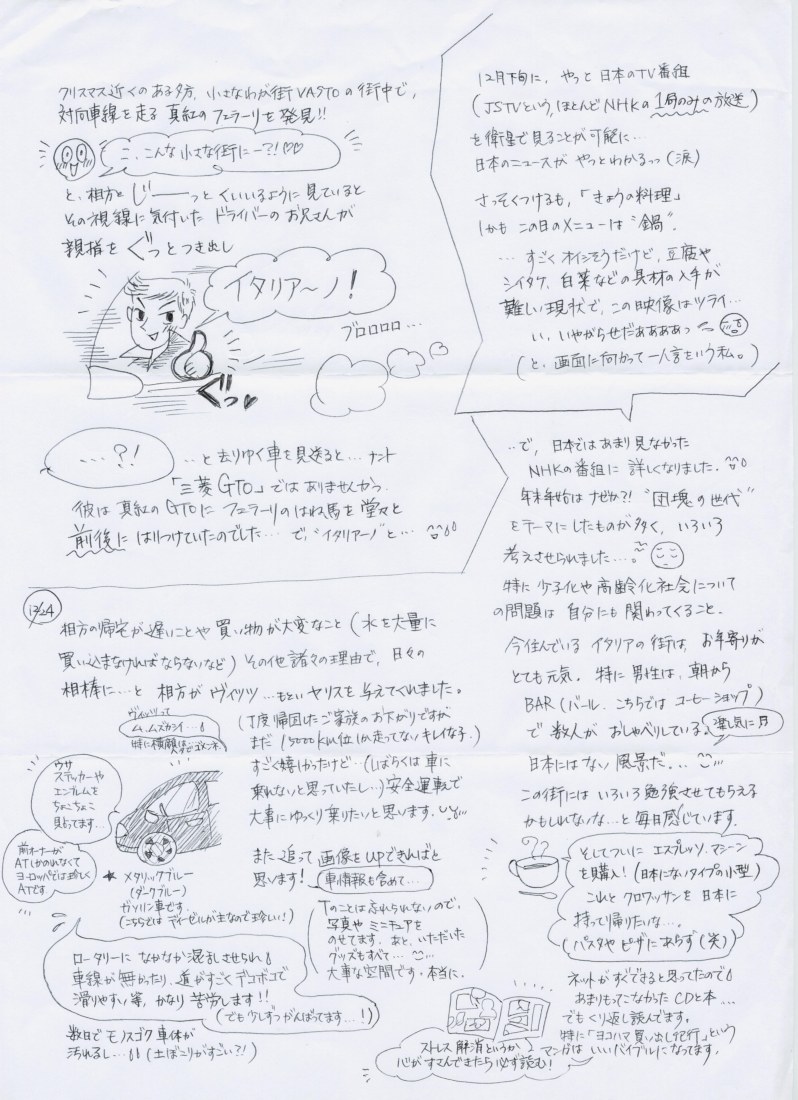 クリスマス近くのある夕方、小さなわが街VASTOの街中で、
対向車線を走る真紅のフェラーリを発見!!
こ、こんな小さな街にー?!♡♡
と、相方と じーーっと くいいるように見ていると
その視線に気付いた ドライバーのお兄さんが
親指を ぐっとつき出し
イタリア～ノ!
ブロロロロ…
ぐっ♥
…?!
…と去りゆく車を見送ると… ナント
「三菱GTO」ではありませんかっ
彼は 真紅のGTOに フェラーリのはね馬を堂々と
前後に はりつけていたのでした… で、"イタリアーノ"と…
12/24
相方の帰宅が遅いことや 買い物が大変なこと(水を大量に
買い込まなければならないなど)その他 諸々の理由で、日々の
相棒に…と 相方が ヴィッツ…もとい ヤリスを与えてくれました。
(丁度帰国したご家族のお下がりですが
まだ15000km位しか走ってないキレイな子。)
すごく嬉しかったけど…(しばらくは 車に
乗れないと思っていたし…)安全運転で
大事にゆっくり乗りたいと思います。
ヴィッツって
ム、ムズカシイ…
特に横顔は…
ウサ
ステッカーや
エンブレムを
ちょこちょこ
貼ってます…
前オーナーが
ATしかのれなくて
ヨーロッパでは珍しく
ATです
★ メタリックブルー
(ダークブルー)
ガソリン車です。
(こちらでは ディーゼルが主なので珍しい!)
また 追って 画像をUPできればと
思います!
車情報も含めて…
Tのことは忘れられないので、
写真や ミニチュアを
のせてます。あと、いただいた
グッズもすべて…
大事な空間です。本当に。
ロータリーに なかなか混乱させられ
車線が無かったり、道がすごくデコボコで
滑りやすい等、かなり苦労します!!
(でも少しずつがんばってます…!)
数日で モノスゴク 車体が
汚れるし… (土ぼこりがすごい?!)
12月下旬に、やっと 日本のTV番組
(JSTVという、ほとんどNHKの1局のみの放送)
を衛星で見ることが可能に…
日本のニュースが やっとわかるっっ (涙)
さっそくつけるも、「きょうの料理」
しかも この日のメニューは"鍋"。
…すごくオイシそうだけど、豆腐や
シイタケ、白菜などの具材の入手が
難しい現状で、この映像はツライ…
い、いやがらせだああああっ
(と、画面に向かって一人言をいう私。)
…で、日本ではあまり見なかった
NHKの番組に 詳しくなりました。
年末年始は ナゼか?! "団塊の世代"
をテーマにしたものが多く、いろいろ
考えさせられました…。
特に 少子化や 高齢化社会について
の問題は 自分にも 関わってくること。
今住んでいる イタリアの街は、お年寄りが
とても元気。特に 男性は、朝から
BAR(バール。こちらでは コーヒーショップ)
で 数人が おしゃべりしている。
日本にはない 風景だ…
この街には いろいろ 勉強させてもらえる
かもしれないな…と 毎日感じています。
そしてついに エスプレッソ マシーン
を購入!(日本にないタイプの小型)
これと クロワッサンを 日本に
持って帰りたいな…。
(パスタや ピザにあらず(笑)
ネットが すぐできると思ってたので
あまりもってこなかった CDと本…
でもくり返し読んでます。
特に「ヨコハマ買い出し紀行」という
マンガは いいバイブルになってます。
ストレス解消というか
心がすさんできたら必ず読む!